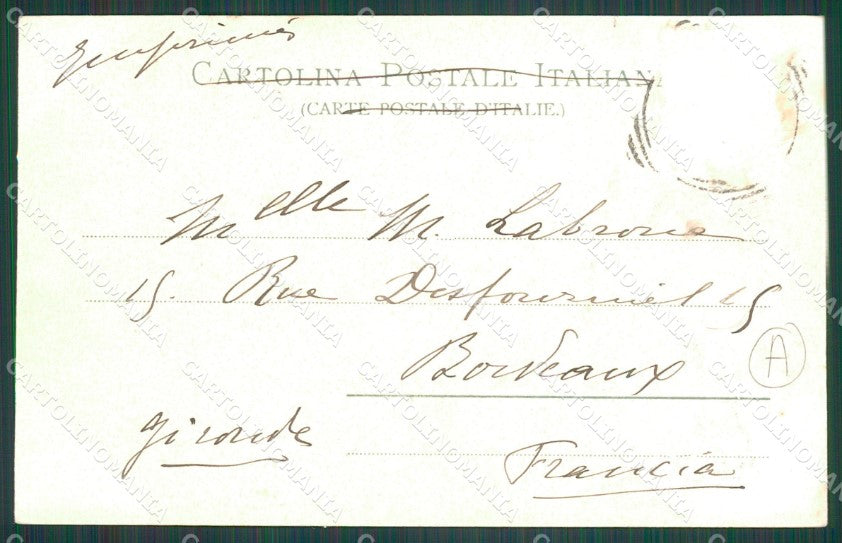 Imprimés
CARTOLINA POSTALE ITALIANA
(CARTE POSTALE D'ITALIE.)
Melle M. Labrone
15. Rue Desfourniel 15
Bordeaux
A
Gironde
Francia
CARTOLINOMANIA